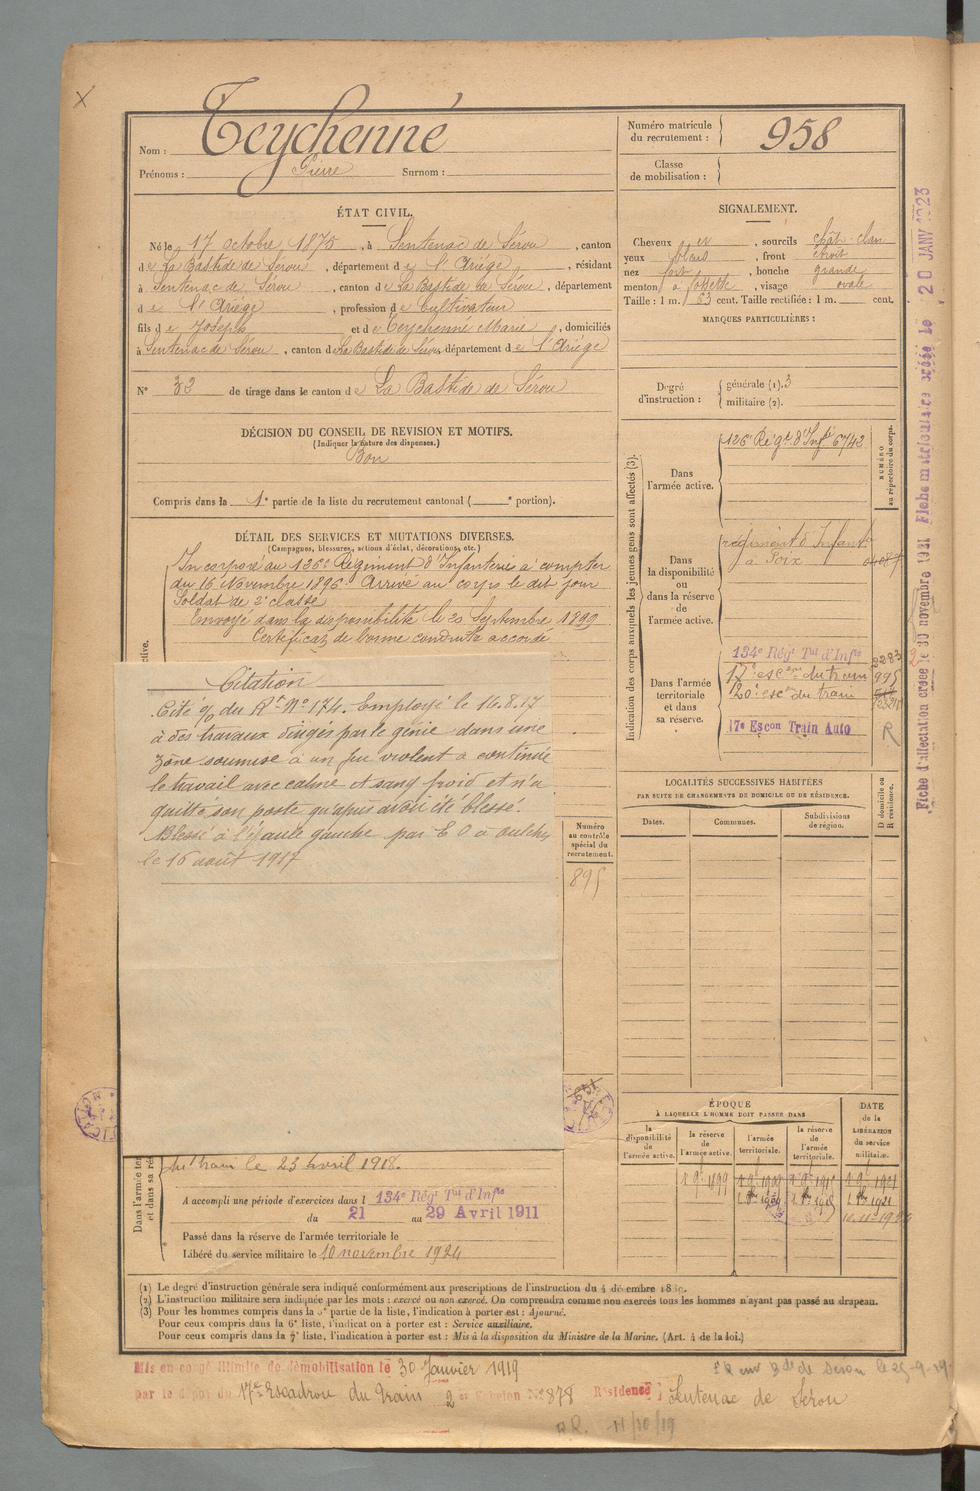 Nom : Teychenné
Prénoms : Pierre Surnom :
Numéro matricule
du recrutement : 958
Classe
de mobilisation :
ÉTAT CIVIL.
Né le 17 octobre 1875, à Sentenac de Sérou, canton
de La Bastide de Sérou, département de l'Ariège, résidant
à Sentenac de Sérou, canton de La Bastide de Sérou, département
de l'Ariège, profession de Cultivateur
fils de Joseph et de Teychenné Marie, domiciliés
à Sentenac de Sérou, canton de La Bastide de Sérou, département de l'Ariège
N° 32 de tirage dans le canton de La Bastide de Sérou
DÉCISION DU CONSEIL DE REVISION ET MOTIFS.
(Indiquer la nature des dispenses.)
Bon
Compris dans la 1e partie de la liste du recrutement cantonal ( e portion).
DÉTAIL DES SERVICES ET MUTATIONS DIVERSES.
(Campagnes, blessures, actions d'éclat, décorations, etc.)
Incorporé au 126e Régiment d'Infanterie à compter
du 16 Novembre 1896. Arrivé au corps le dit jour
Soldat de 2e classe
Envoyé dans la disponibilité le 20 Septembre 1899
Certificat de bonne conduite accordé
Citation
Cité o/ du Rt N° 174. Employé le 16.8.17
à des travaux dirigés par le génie dans une
zône soumise à un feu violent a continué
le travail avec calme et sang froid et n'a
quitté son poste qu'après avoir été blessé.
Blessé à l'épaule gauche par E O à Oulches
le 16 août 1917
Numéro
au contrôle
spécial du
recrutement.
895
du train le 23 avril 1918.
A accompli une période d'exercices dans l 134e Régt Tal d'Infie
du 21 au 29 Avril 1911
Passé dans la réserve de l'armée territoriale le
Libéré du service militaire le 10 novembre 1924
SIGNALEMENT.
Cheveux et, sourcils chât. clair
yeux bleus, front étroit
nez fort, bouche grande
menton à fossette, visage ovale
Taille : 1 m. 63 cent. Taille rectifiée : 1 m. cent.
MARQUES PARTICULIÈRES :
Degré
d'instruction :
générale (1). 3
militaire (2).
Indication des corps auxquels les jeunes gens sont affectés (3).
NUMÉRO
au répertoire du corps.
Dans
l'armée active.
126e Régt d'Infie 6742
Dans
la disponibilité
ou
dans la réserve
de
l'armée active.
régiment d'Infantie
à Foix
Dans l'armée
territoriale
et dans
sa réserve.
134e Régt Tal d'Infie 2283
17e escon du train 995
20e escon du train
17e Escon Train Auto R
LOCALITÉS SUCCESSIVES HABITÉES
PAR SUITE DE CHANGEMENTS DE DOMICILE OU DE RÉSIDENCE.
Dates. Communes. Subdivisions
de région.
D domicile ou
R résidence.
ÉPOQUE
À LAQUELLE L'HOMME DOIT PASSER DANS
la
disponibilité
de
l'armée active.
la réserve
de
l'armée active.
l'armée
territoriale.
la réserve
de
l'armée
territoriale.
DATE
de la
LIBÉRATION
du service
militaire.
(1) Le degré d'instruction générale sera indiqué conformément aux prescriptions de l'instruction du 4 décembre 1889.
(2) L'instruction militaire sera indiquée par les mots : exercé ou non exercé. On comprendra comme non exercés tous les hommes n'ayant pas passé au drapeau.
(3) Pour les hommes compris dans la 5e partie de la liste, l'indication à porter est : Ajourné.
Pour ceux compris dans la 6e liste, l'indication à porter est : Service auxiliaire.
Pour ceux compris dans la 7e liste, l'indication à porter est : Mis à la disposition du Ministre de la Marine. (Art. 4 de la loi.)
Mis en congé illimité de démobilisation le 30 Janvier 1919
par le dépôt du 17e Escadron du Train 2e Echelon N° 878 Résidence Sentenac de Sérou
11/10/19
Fiche d'affectation créée le 30 novembre 1921 Fiche matriculaire créée le 20 JANV 1923